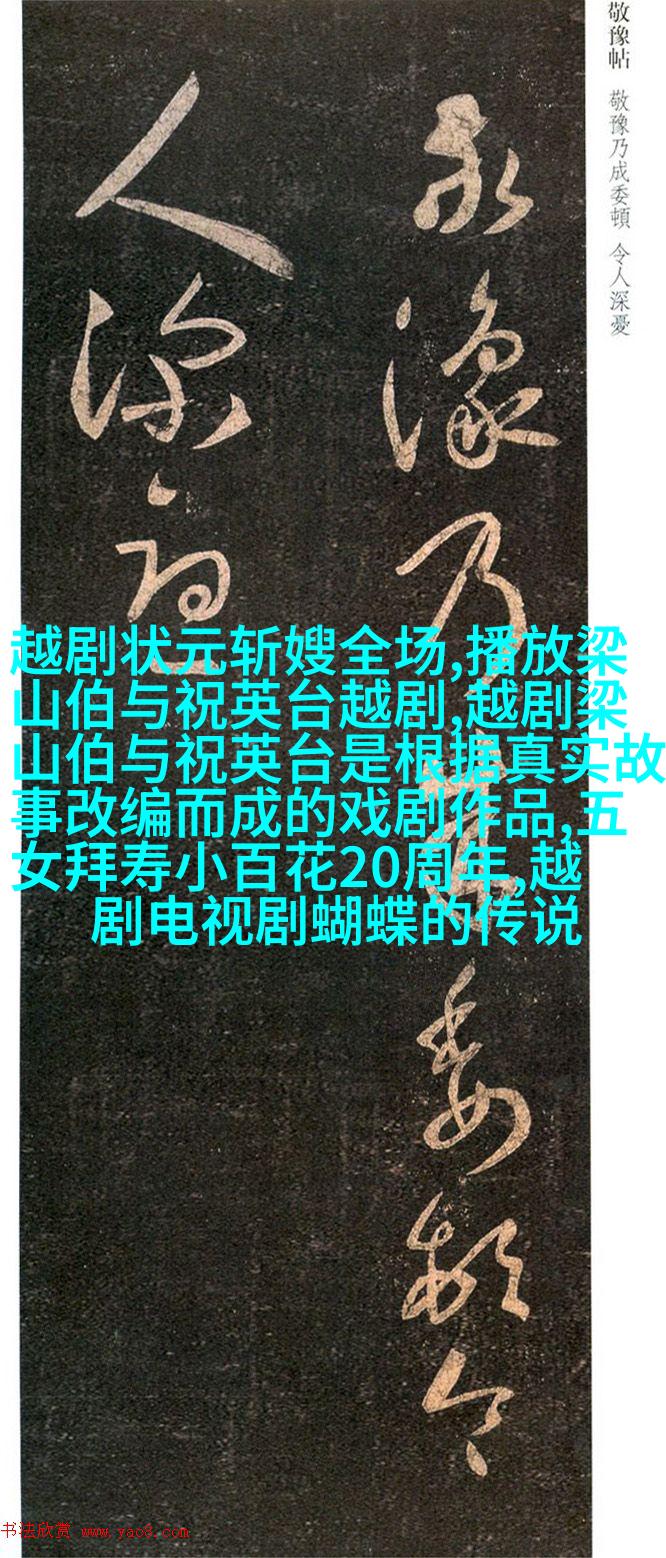 敬豫帖 敬豫乃成委頓 令人深憂
敬豫乃成委頓令
人深憂
越剧状元斩嫂全场,播放梁
山伯与祝英台越剧,越剧梁
山伯与祝英台是根据真实故
事改编而成的戏剧作品,五
女拜寿小百花20周年,越
剧电视剧蝴蝶的传说
书法欣赏 www.yac8.com